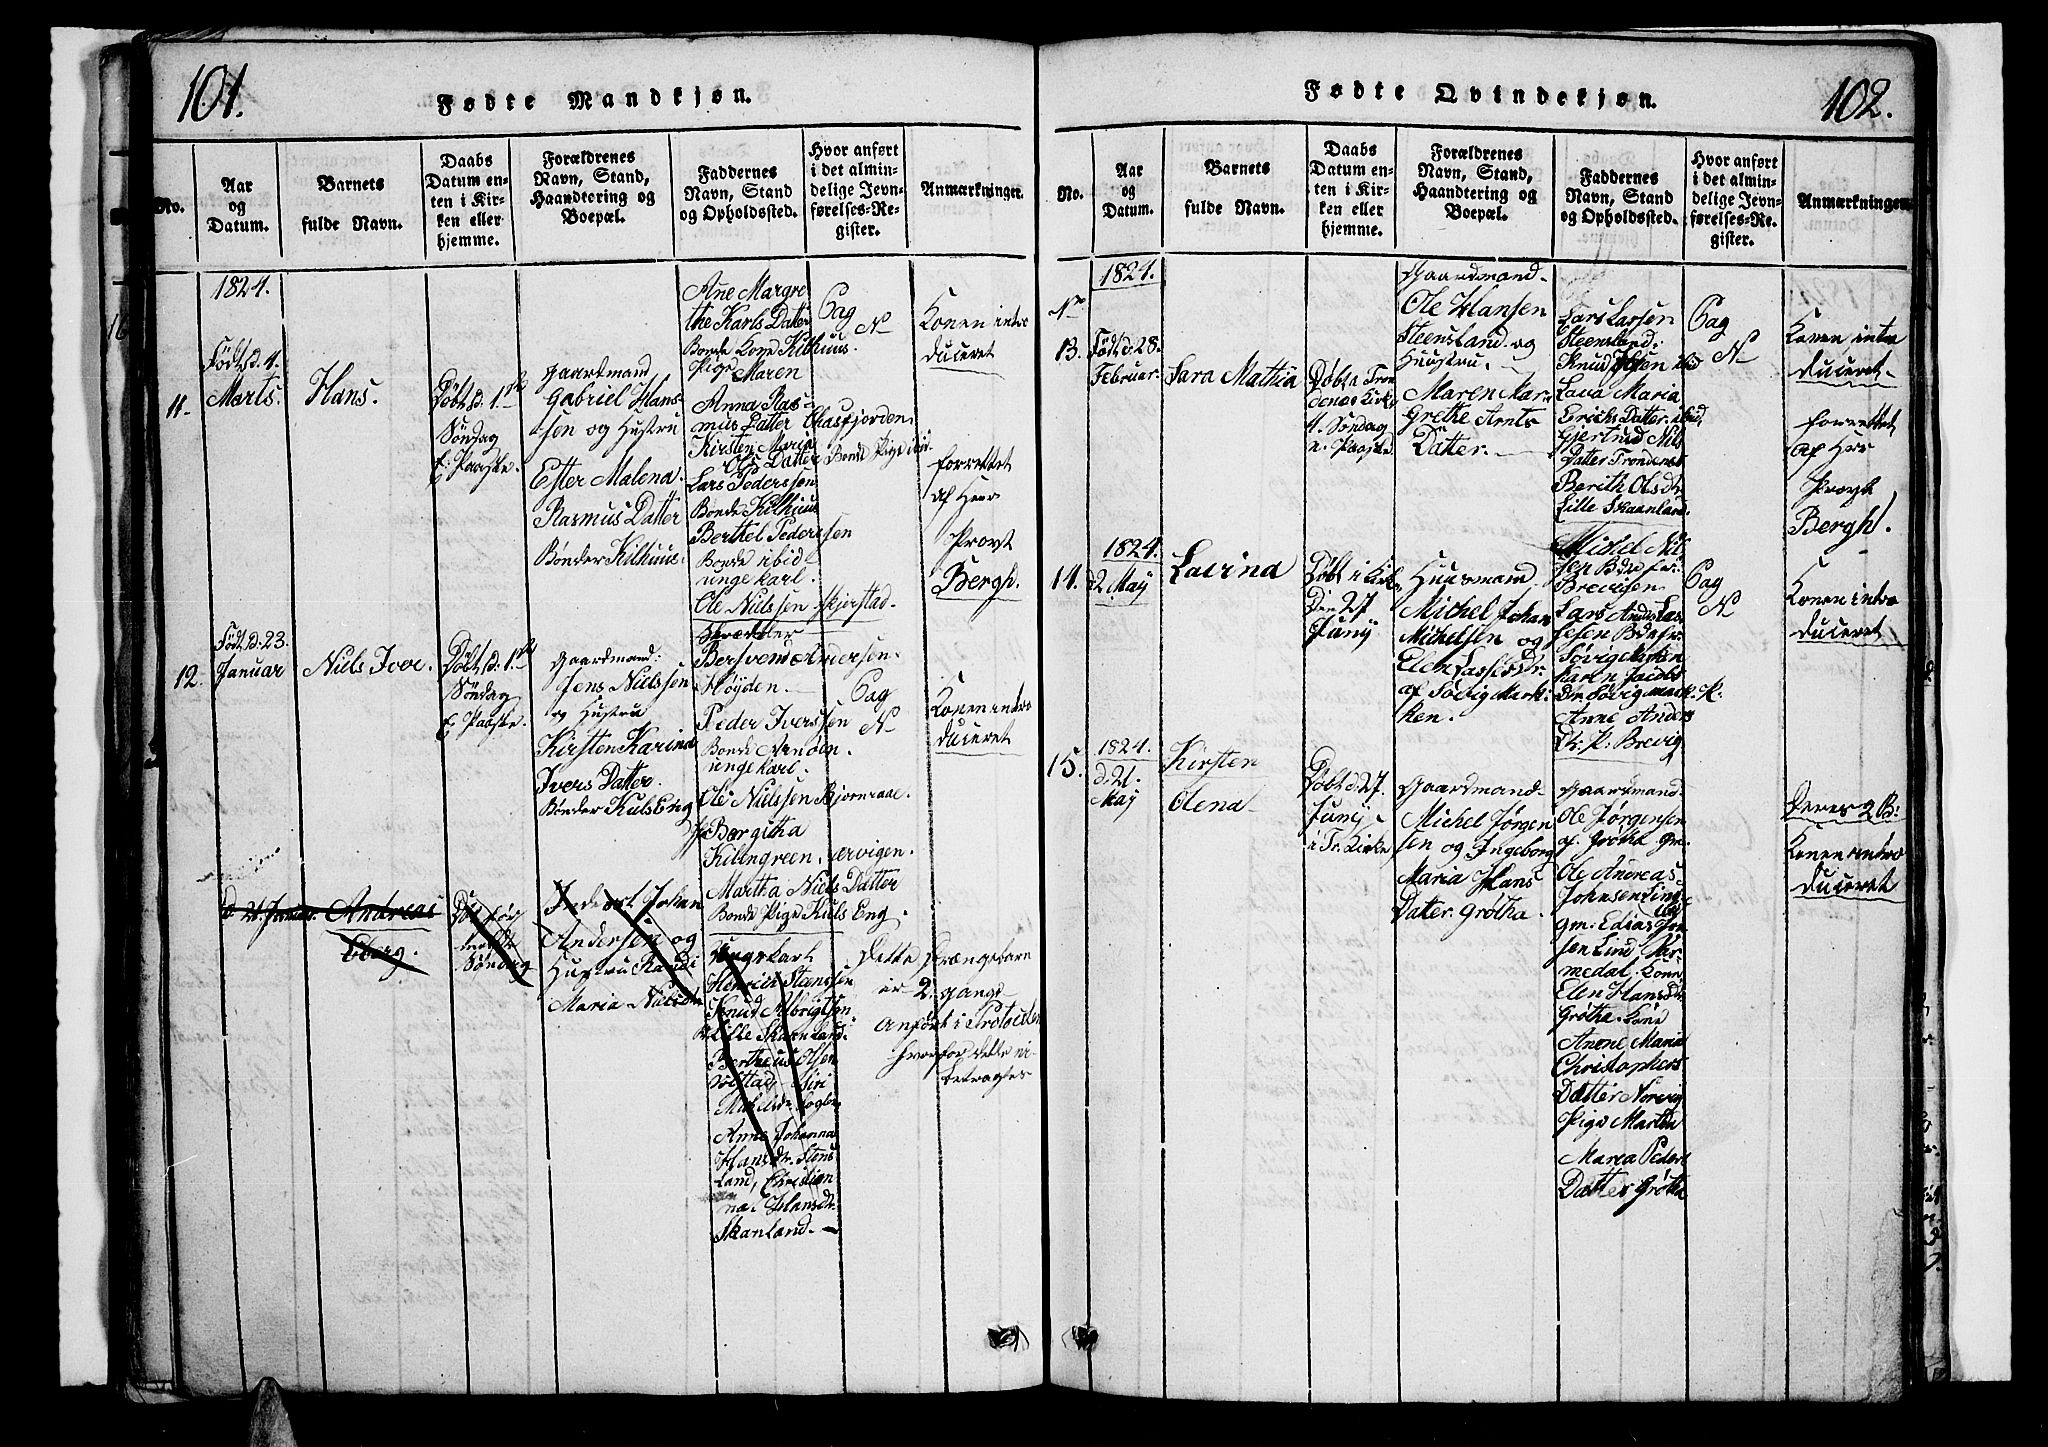 101.
Fødte Mandkjøn.
No.
Aar
og
Datum.
Barnets
fulde Navn.
Daabs
Datum en-
ten i Kir-
ken eller
hjemme.
Forældrenes
Navn, Stand,
Haandtering og
Boepæl.
Faddernes
Navn, Stand
og Opholdssted.
Hvor anført
i det almin-
delige Jevn-
førelses-Re-
gister.
Anmærkninger.
1824.
11.
Født d. 4.
Marts.
Hans.
Døbt d. 1ste
Søndag
E. Paaske.
Gaardmand
Gabriel Hans-
sen og Hustru
Ester Malena
Rasmus Datter
Bønder Kilhuus.
Ane Margre
the Karls Datter
Bonde Kone Kilhuus.
Pige Maren
Anna Ras-
mus Datter
Kirsten Maria
Ols Datter
Lars Pederssen
Bonde Kilhuus
Berthel Pederssen
Bonde ibid
unge karl.
Ole Nielssen
Pag
N
Konen intro
duceret
forrettet
af Herr
Provst
Bergh.
12.
Født d. 23.
Januar
Niels Iver.
Døbt d. 1ste
Søndag
E. Paaske.
Gaardmand:
Jens Nielssen
og Hustru
Kirsten Karina
Ivers Datter.
Bønder Kuls Eng
Bersvend Andersen
Høyden.
Peder Iverssen
Bonde
unge karl.
Ole Nielssen
Bergitha
Kilengreen.
Martha Niels Datter
Bonde Pige Kuls Eng.
Pag
N
Konen intro
duceret
d. 21. Januar.
Andreas
Eberg.
Søndag
Johan
Andersen og
Hustru Randi
Maria Nielsdr
Unge karl
Henrich
Knud Albrigtsen
Lille Skaanland.
Anne Johanna
Hansdr. Stens
land, Christian
na Hansdr.
Skanland.
Dette Drængebarn
er 2 gange
anført i Protocolen
hvorfor dette ei
betragtes
102.
Fødte Qvindekjøn.
No.
Aar
og
Datum.
Barnets
fulde Navn.
Daabs
Datum en-
ten i Kir-
ken eller
hjemme.
Forældrenes
Navn, Stand,
Haandtering og
Boepæl.
Faddernes
Navn, Stand
og Opholdssted.
Hvor anført
i det almin-
delige Jevn-
førelses-Re-
gister.
Anmærkninger.
1824.
No
13.
Født d. 28.
Februar.
Sara Mathia
Døbt i Tron
denes Kirke
4. Søndag
e. Paaske
Gaardmand
Ole Hansen
Steensland og
Huustru.
Maren Mar-
Grethe Arnts
Datter.
Lars Larsen
Steensland.
Knud Olsen ibid
Lava Maria
Erichs Datter ibid,
Gjertrud Nils
Datter Trondenes
Berith Olsdr
Lille Skaanland.
Pag
N
Konen intro
duceret
forrettet
af Herr
Provst
Bergh.
1824.
14.
d 2 May
Lavina
Døbt i Kirke
Den 27
Juny
Huusmand
Michel Johan
Michelsen og
Elen Lassesdr.
af Søvig Mark-
ken.
Michel Nil
sen
Brevigen.
Lars Anders Las
sesen
Søvig Marken
Karen Jacobs
Dr. Søvig Mark.
Anne Anders
Dr. P. Brevig
Pag
N
Konen intro
duceret
15.
1824.
d. 21.
May
Kirsten
Olena
Døbt d. 27.
Juny
i Tr. Kirke
Gaardmand
Michel Jørgen
sen og Ingeborg
Maria Hans
Datter. Grøtha.
Gaardmand:
Ole Jørgensen
af Grøtha Gm.
Ole Andreas
Johnsen Lind
Gm. Edias Jon
sen Lind
medal. Kone
Elen Hansdr
Grøtha. Kone
Anne Maria
Christophers
Datter Norvig
Pige Martha
Maria Peders
Datter Grøtha
Deres 2 B:
Konen intro
duceret